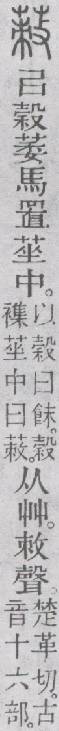 𦯔 㠯穀萎馬置莝中。以穀曰餗。穀襍莝中曰𦯔。从艸。敇聲。楚革切。古音十六部。